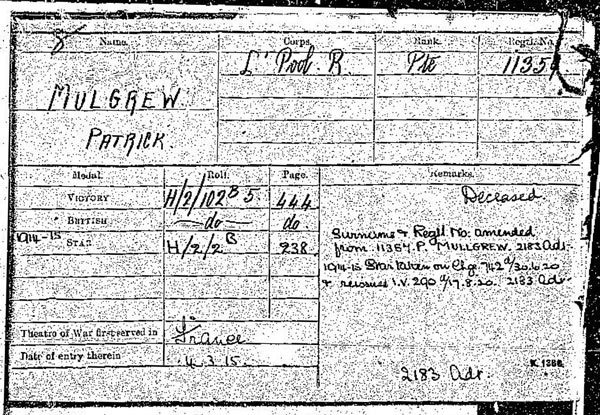 Name. Corps. Rank. Regtl. No.
MULGREW L'Pool. R. Pte 1135
PATRICK.
Medal. Roll. Page. Remarks.
VICTORY H/2/102 B 5 444 Deceased
BRITISH do do
1914-15 STAR H/2/2 B 238
Surname & Regtl No. amended
from 11357 P. MULGREW. 2183 Adr.
1914-15 Star taken on Chge 742 d/30.6.20
& reissued I.V. 290 d/17.8.20. 2183 Adr
Theatre of War first served in France
Date of entry therein 4.3.15.
K. 1380.
2183 Adr.